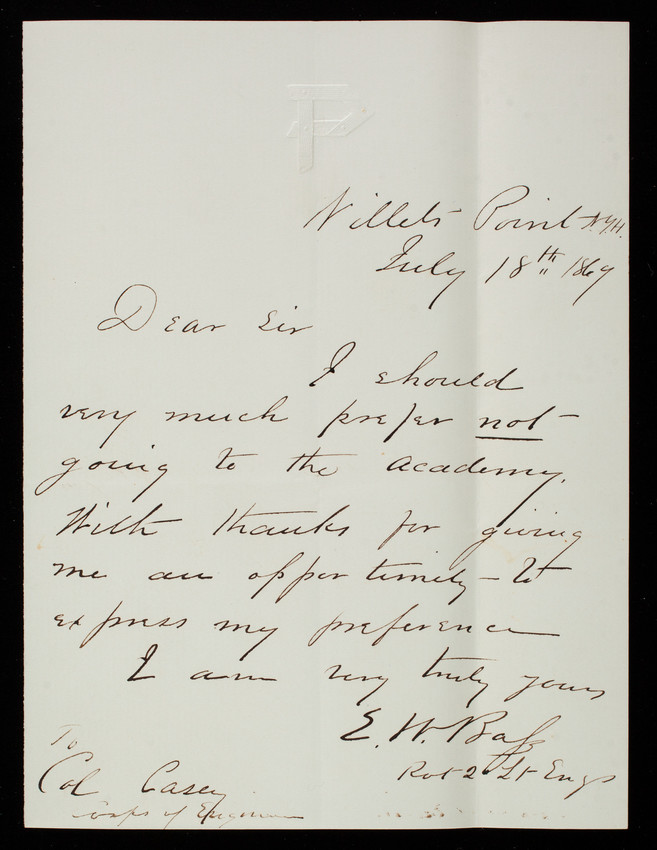 Willets Point N.Y.H.
July 18th 1869
Dear Sir
I should
very much prefer not
going to the academy.
With thanks for giving
me an opportunity to
express my preference
I am very truly yours
E. W. Bass
2d Lt Engs
To
Col Casey
Corps of Engineers